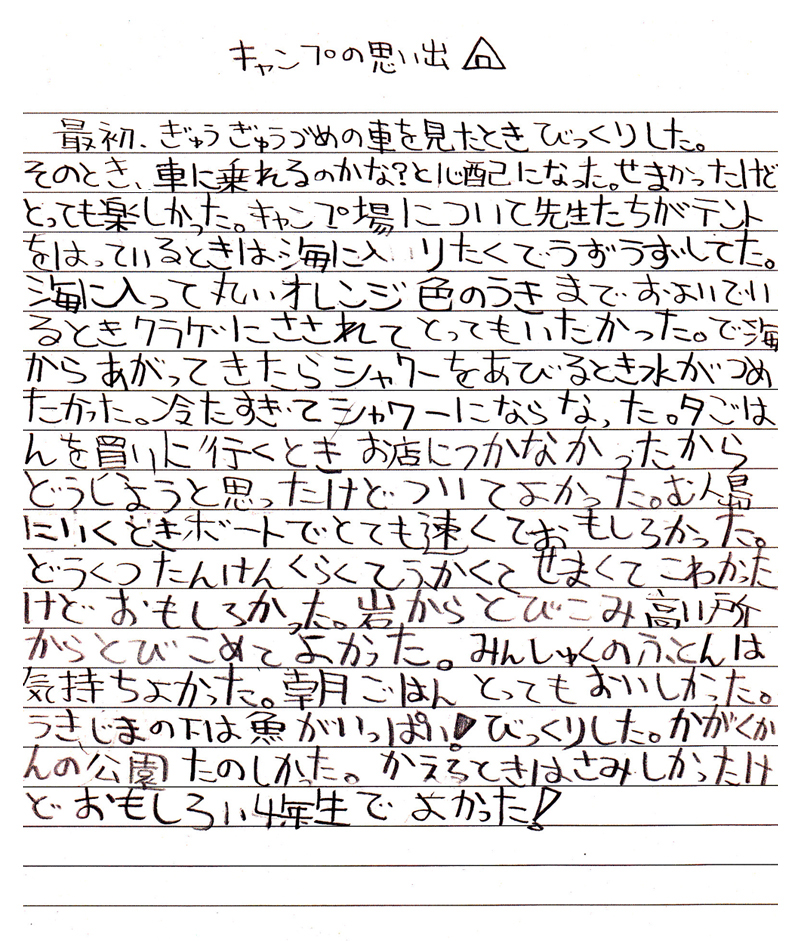 キャンプの思い出
最初、ぎゅうぎゅうづめの車を見たときびっくりした。
そのとき、車に乗れるのかな?と心配になった。せまかったけど
とっても楽しかった。キャンプ場について先生たちがテント
をはっているときは海に入りたくてうずうずしてた。
海に入って丸いオレンジ色のうきまでおよいでい
るときクラゲにさされてとってもいたかった。で海
からあがってきたらシャワーをあびるとき水がつめ
たかった。冷たすぎてシャワーにならなった。夕ごは
んを買いに行くときお店につかなかったから
どうしようと思ったけどついてよかった。む人島
にいくときボートでとても速くておもしろかった。
どうくつたんけんくらくてふかくてせまくてこわかった
けどおもしろかった。岩からとびこみ高い所
からとびこめてよかった。みんしゅくのふとんは
気持ちよかった。朝ごはんとってもおいしかった。
うきじまの下は魚がいっぱい!びっくりした。かがくか
んの公園たのしかった。かえるときはさみしかったけ
どおもしろい4年生でよかった!